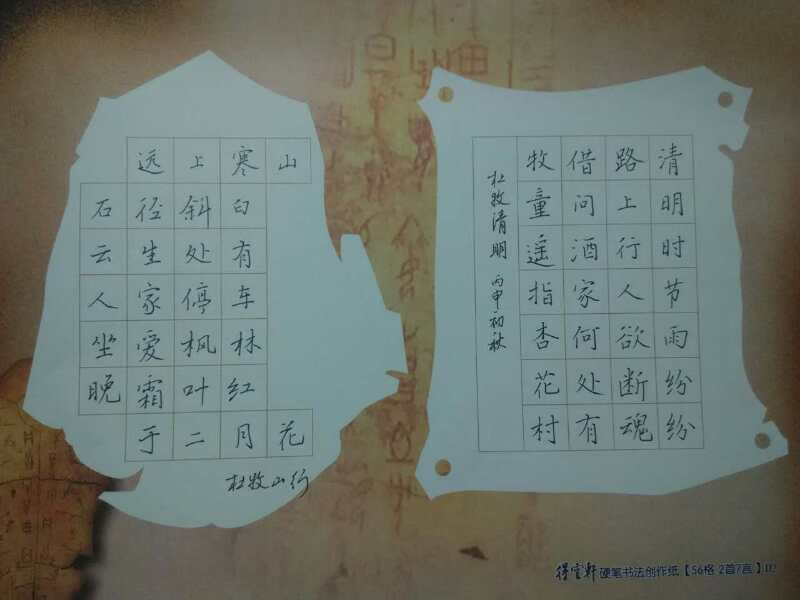 远上寒山
石径斜白
云生处有
人家停车
坐爱枫林
晚霜叶红
于二月花
杜牧山行
清明时节雨纷纷
路上行人欲断魂
借问酒家何处有
牧童遥指杏花村
杜牧清明 丙申初秋
硬笔书法创作纸【56格 2首7言】